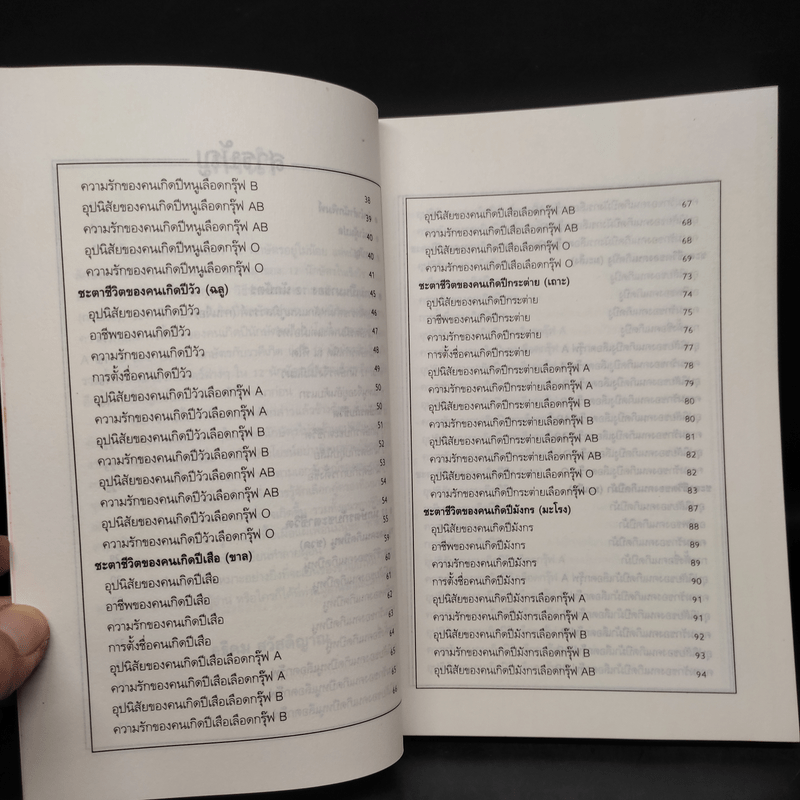 ความรักของคนเกิดปีหนูเลือดกรุ๊ฟ B 38
อุปนิสัยของคนเกิดปีหนูเลือดกรุ๊ฟ AB 39
ความรักของคนเกิดปีหนูเลือดกรุ๊ฟ AB 40
อุปนิสัยของคนเกิดปีหนูเลือดกรุ๊ฟ O 40
ความรักของคนเกิดปีหนูเลือดกรุ๊ฟ O 41
ชะตาชีวิตของคนเกิดปีวัว (ฉลู) 45
อุปนิสัยของคนเกิดปีวัว 46
อาชีพของคนเกิดปีวัว 47
ความรักของคนเกิดปีวัว 48
การตั้งชื่อคนเกิดปีวัว 49
อุปนิสัยของคนเกิดปีวัวเลือดกรุ๊ฟ A 50
ความรักของคนเกิดปีวัวเลือดกรุ๊ฟ A 50
อุปนิสัยของคนเกิดปีวัวเลือดกรุ๊ฟ B 51
ความรักของคนเกิดปีวัวเลือดกรุ๊ฟ B 52
อุปนิสัยของคนเกิดปีวัวเลือดกรุ๊ฟ AB 53
ความรักของคนเกิดปีวัวเลือดกรุ๊ฟ AB 54
อุปนิสัยของคนเกิดปีวัวเลือดกรุ๊ฟ O 54
ความรักของคนเกิดปีวัวเลือดกรุ๊ฟ O 55
ชะตาชีวิตของคนเกิดปีเสือ (ขาล) 59
อุปนิสัยของคนเกิดปีเสือ 60
อาชีพของคนเกิดปีเสือ 61
ความรักของคนเกิดปีเสือ 62
การตั้งชื่อคนเกิดปีเสือ 63
อุปนิสัยของคนเกิดปีเสือเลือดกรุ๊ฟ A 64
ความรักของคนเกิดปีเสือเลือดกรุ๊ฟ A 65
อุปนิสัยของคนเกิดปีเสือเลือดกรุ๊ฟ B 65
ความรักของคนเกิดปีเสือเลือดกรุ๊ฟ B 66
อุปนิสัยของคนเกิดปีเสือเลือดกรุ๊ฟ AB 67
ความรักของคนเกิดปีเสือเลือดกรุ๊ฟ AB 68
อุปนิสัยของคนเกิดปีเสือเลือดกรุ๊ฟ O 68
ความรักของคนเกิดปีเสือเลือดกรุ๊ฟ O 69
ชะตาชีวิตของคนเกิดปีกระต่าย (เถาะ) 73
อุปนิสัยของคนเกิดปีกระต่าย 74
อาชีพของคนเกิดปีกระต่าย 75
ความรักของคนเกิดปีกระต่าย 76
การตั้งชื่อคนเกิดปีกระต่าย 77
อุปนิสัยของคนเกิดปีกระต่ายเลือดกรุ๊ฟ A 78
ความรักของคนเกิดปีกระต่ายเลือดกรุ๊ฟ A 79
อุปนิสัยของคนเกิดปีกระต่ายเลือดกรุ๊ฟ B 80
ความรักของคนเกิดปีกระต่ายเลือดกรุ๊ฟ B 80
อุปนิสัยของคนเกิดปีกระต่ายเลือดกรุ๊ฟ AB 81
ความรักของคนเกิดปีกระต่ายเลือดกรุ๊ฟ AB 82
อุปนิสัยของคนเกิดปีกระต่ายเลือดกรุ๊ฟ O 82
ความรักของคนเกิดปีกระต่ายเลือดกรุ๊ฟ O 83
ชะตาชีวิตของคนเกิดปีมังกร (มะโรง) 87
อุปนิสัยของคนเกิดปีมังกร 88
อาชีพของคนเกิดปีมังกร 89
ความรักของคนเกิดปีมังกร 89
การตั้งชื่อคนเกิดปีมังกร 90
อุปนิสัยของคนเกิดปีมังกรเลือดกรุ๊ฟ A 91
ความรักของคนเกิดปีมังกรเลือดกรุ๊ฟ A 91
อุปนิสัยของคนเกิดปีมังกรเลือดกรุ๊ฟ B 92
ความรักของคนเกิดปีมังกรเลือดกรุ๊ฟ B 93
อุปนิสัยของคนเกิดปีมังกรเลือดกรุ๊ฟ AB 94